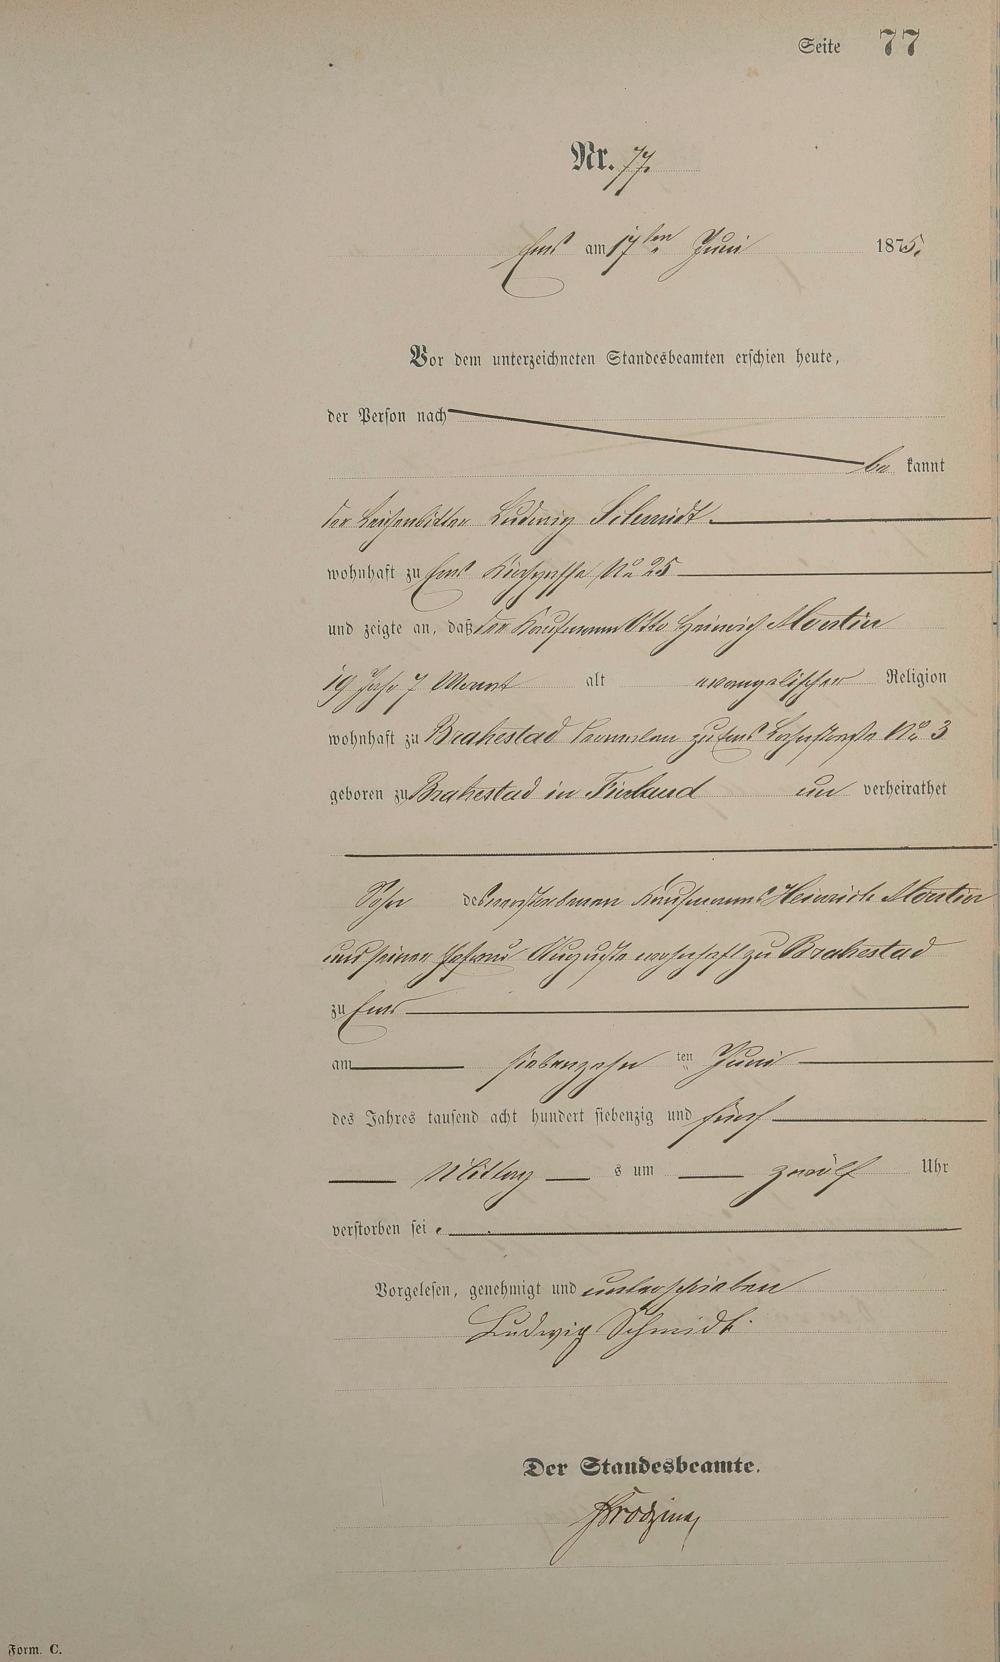 Seite 77
Nr. 77.
Ems am 17ten Juni 1875.
Vor dem unterzeichneten Standesbeamten erschien heute,
der Person nach
be kannt
der Leichenbitter Ludwig Schmidt.
wohnhaft zu Ems Kirchgasse No 25
und zeigte an, daß der Kaufmann Otto Heinrich
19 Jahr 7 Monat alt evangelischer Religion
wohnhaft zu Brahestad zu Ems No 3
geboren zu Brahestad in Finland un verheirathet
Sohn des verstorbenen Kaufmanns Heinrich
und seiner Ehefrau Auguste wohnhaft zu Brahestad
zu Ems
am siebenzehn ten Juni
des Jahres tausend acht hundert siebenzig und fünf
Mittag s um zwölf Uhr
verstorben sei.
Vorgelesen, genehmigt und unterschrieben
Ludwig Schmidt.
Der Standesbeamte.
Form. C.